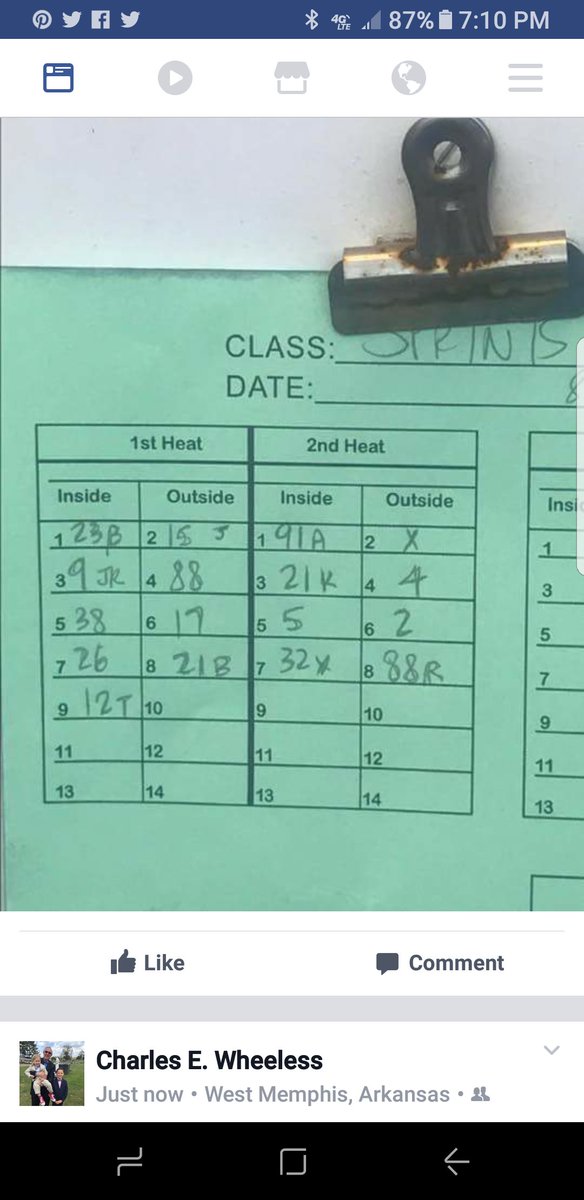 87% 7:10 PM
4G LTE
CLASS: SPRINTS
DATE:
1st Heat 2nd Heat
Inside Outside Inside Outside
1 23B 2 15 J 1 91A 2 X
3 9 JR 4 88 3 21K 4 4
5 38 6 17 5 5 6 2
7 26 8 21B 7 32X 8 88R
9 12T 10 9 10
11 12 11 12
13 14 13 14
Insi
1
3
5
7
9
11
13
Like Comment
Charles E. Wheeless
Just now • West Memphis, Arkansas •